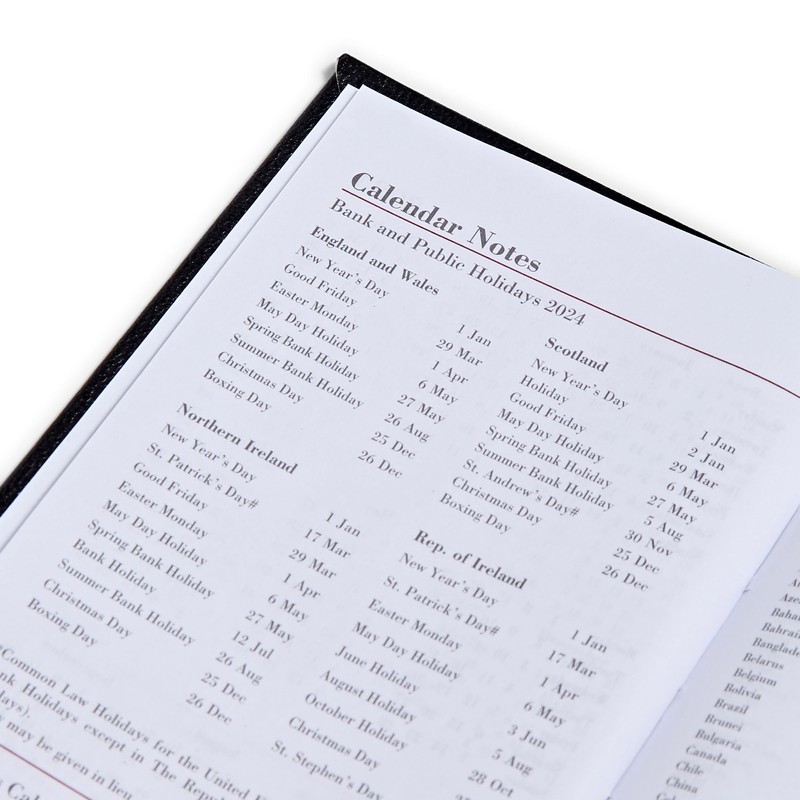 Calendar Notes
Bank and Public Holidays 2024
England and Wales
New Year's Day 1 Jan
Good Friday 29 Mar
Easter Monday 1 Apr
May Day Holiday 6 May
Spring Bank Holiday 27 May
Summer Bank Holiday 26 Aug
Christmas Day 25 Dec
Boxing Day 26 Dec
Northern Ireland
New Year's Day 1 Jan
St. Patrick's Day# 17 Mar
Good Friday 29 Mar
Easter Monday 1 Apr
May Day Holiday 6 May
Spring Bank Holiday 27 May
Bank Holiday 12 Jul
Summer Bank Holiday 26 Aug
Christmas Day 25 Dec
Boxing Day 26 Dec
Scotland
New Year's Day 1 Jan
Holiday 2 Jan
Good Friday 29 Mar
May Day Holiday 6 May
Spring Bank Holiday 27 May
Summer Bank Holiday 5 Aug
St. Andrew's Day# 30 Nov
Christmas Day 25 Dec
Boxing Day 26 Dec
Rep. of Ireland
New Year's Day 1 Jan
St. Patrick's Day# 17 Mar
Easter Monday 1 Apr
May Day Holiday 6 May
June Holiday 3 Jun
August Holiday 5 Aug
October Holiday 28 Oct
Christmas Day
St. Stephen's Day
Common Law Holidays for the United
Holidays except in The
may be given in lieu
Bahrain
Belarus
Belgium
Bolivia
Brazil
Brunei
Bulgaria
Canada
Chile
China